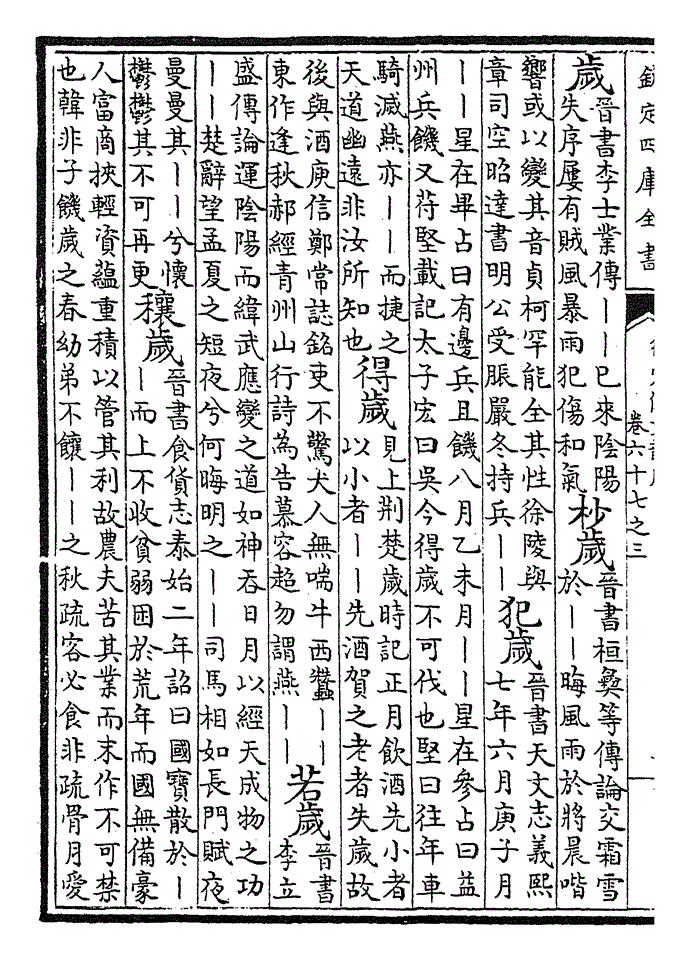 欽定四庫全書
卷六十七之三
歲
晉書李士業傳丨丨已來陰陽
失序屢有賊風暴雨犯傷和氣
杪歲
晉書桓彝等傳論交霜雪
於丨丨晦風雨於將晨喈
響或以變其音貞柯罕能全其性徐陵與
章司空昭達書明公受脤嚴冬持兵丨丨
犯歲
晉書天文志義熙
七年六月庚子月
丨丨星在畢占曰有邊兵且饑八月乙未月丨丨星在參占曰益
州兵饑又苻堅載記太子宏曰吳今得歲不可伐也堅曰往年車
騎滅燕亦丨丨而捷之
天道幽遠非汝所知也
得歲
見上荆楚歲時記正月飲酒先小者
以小者丨丨先酒賀之老者失歲故
後與酒庾信鄭常誌銘吏不驚犬人無喘牛西蠶丨丨
東作逢秋郝經青州山行詩為告慕容超勿謂燕丨丨
若歲
晉書
李立
盛傳論運陰陽而緯武應變之道如神吞日月以經天成物之功
丨丨楚辭望孟夏之短夜兮何晦明之丨丨司馬相如長門賦夜
曼曼其丨丨兮懷
鬱鬱其不可再更
穰歲
晉書食貨志泰始二年詔曰國寶散於丨
丨而上不收貧弱困於荒年而國無備豪
人富商挾輕資蘊重積以管其利故農夫苦其業而末作不可禁
也韓非子饑歲之春幼弟不饟丨丨之秋疏客必食非疏骨月愛